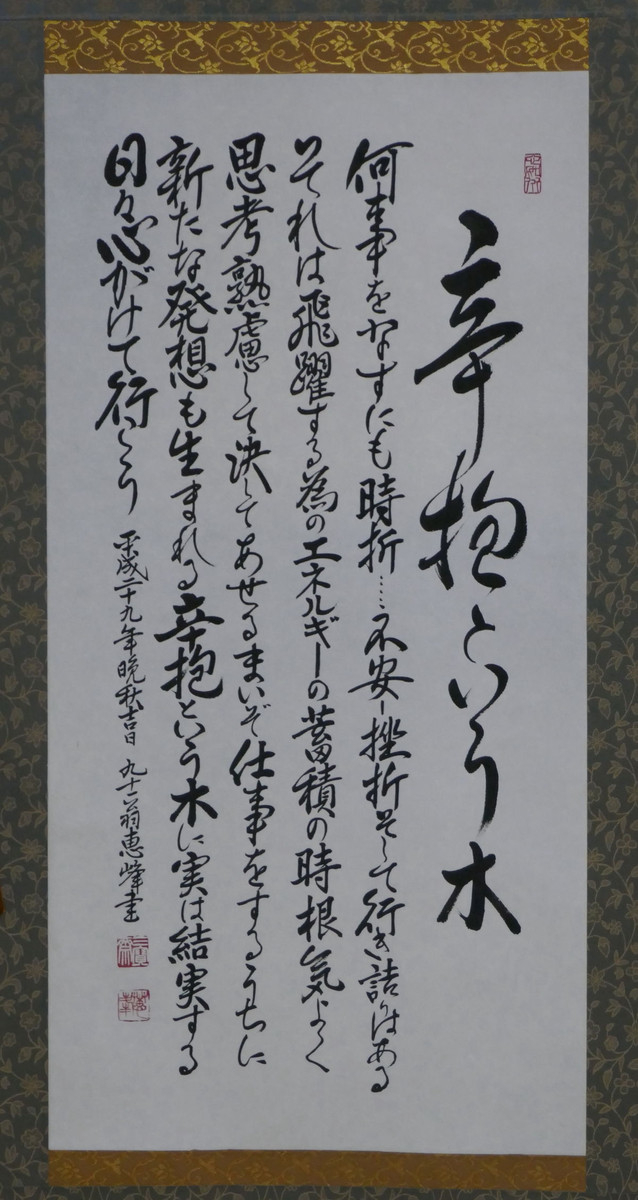 辛抱という木
何事をなすにも時折…不安ー挫折そして行き詰はある
それは飛躍する為のエネルギーの蓄積の時根気よく
思考熟慮して決してあせるまいぞ仕事をするうちに
新たな発想も生まれる辛抱という木に実は結実する
日々心がけて行こう
平成二十九年晩秋吉日 九十六翁恵峰書